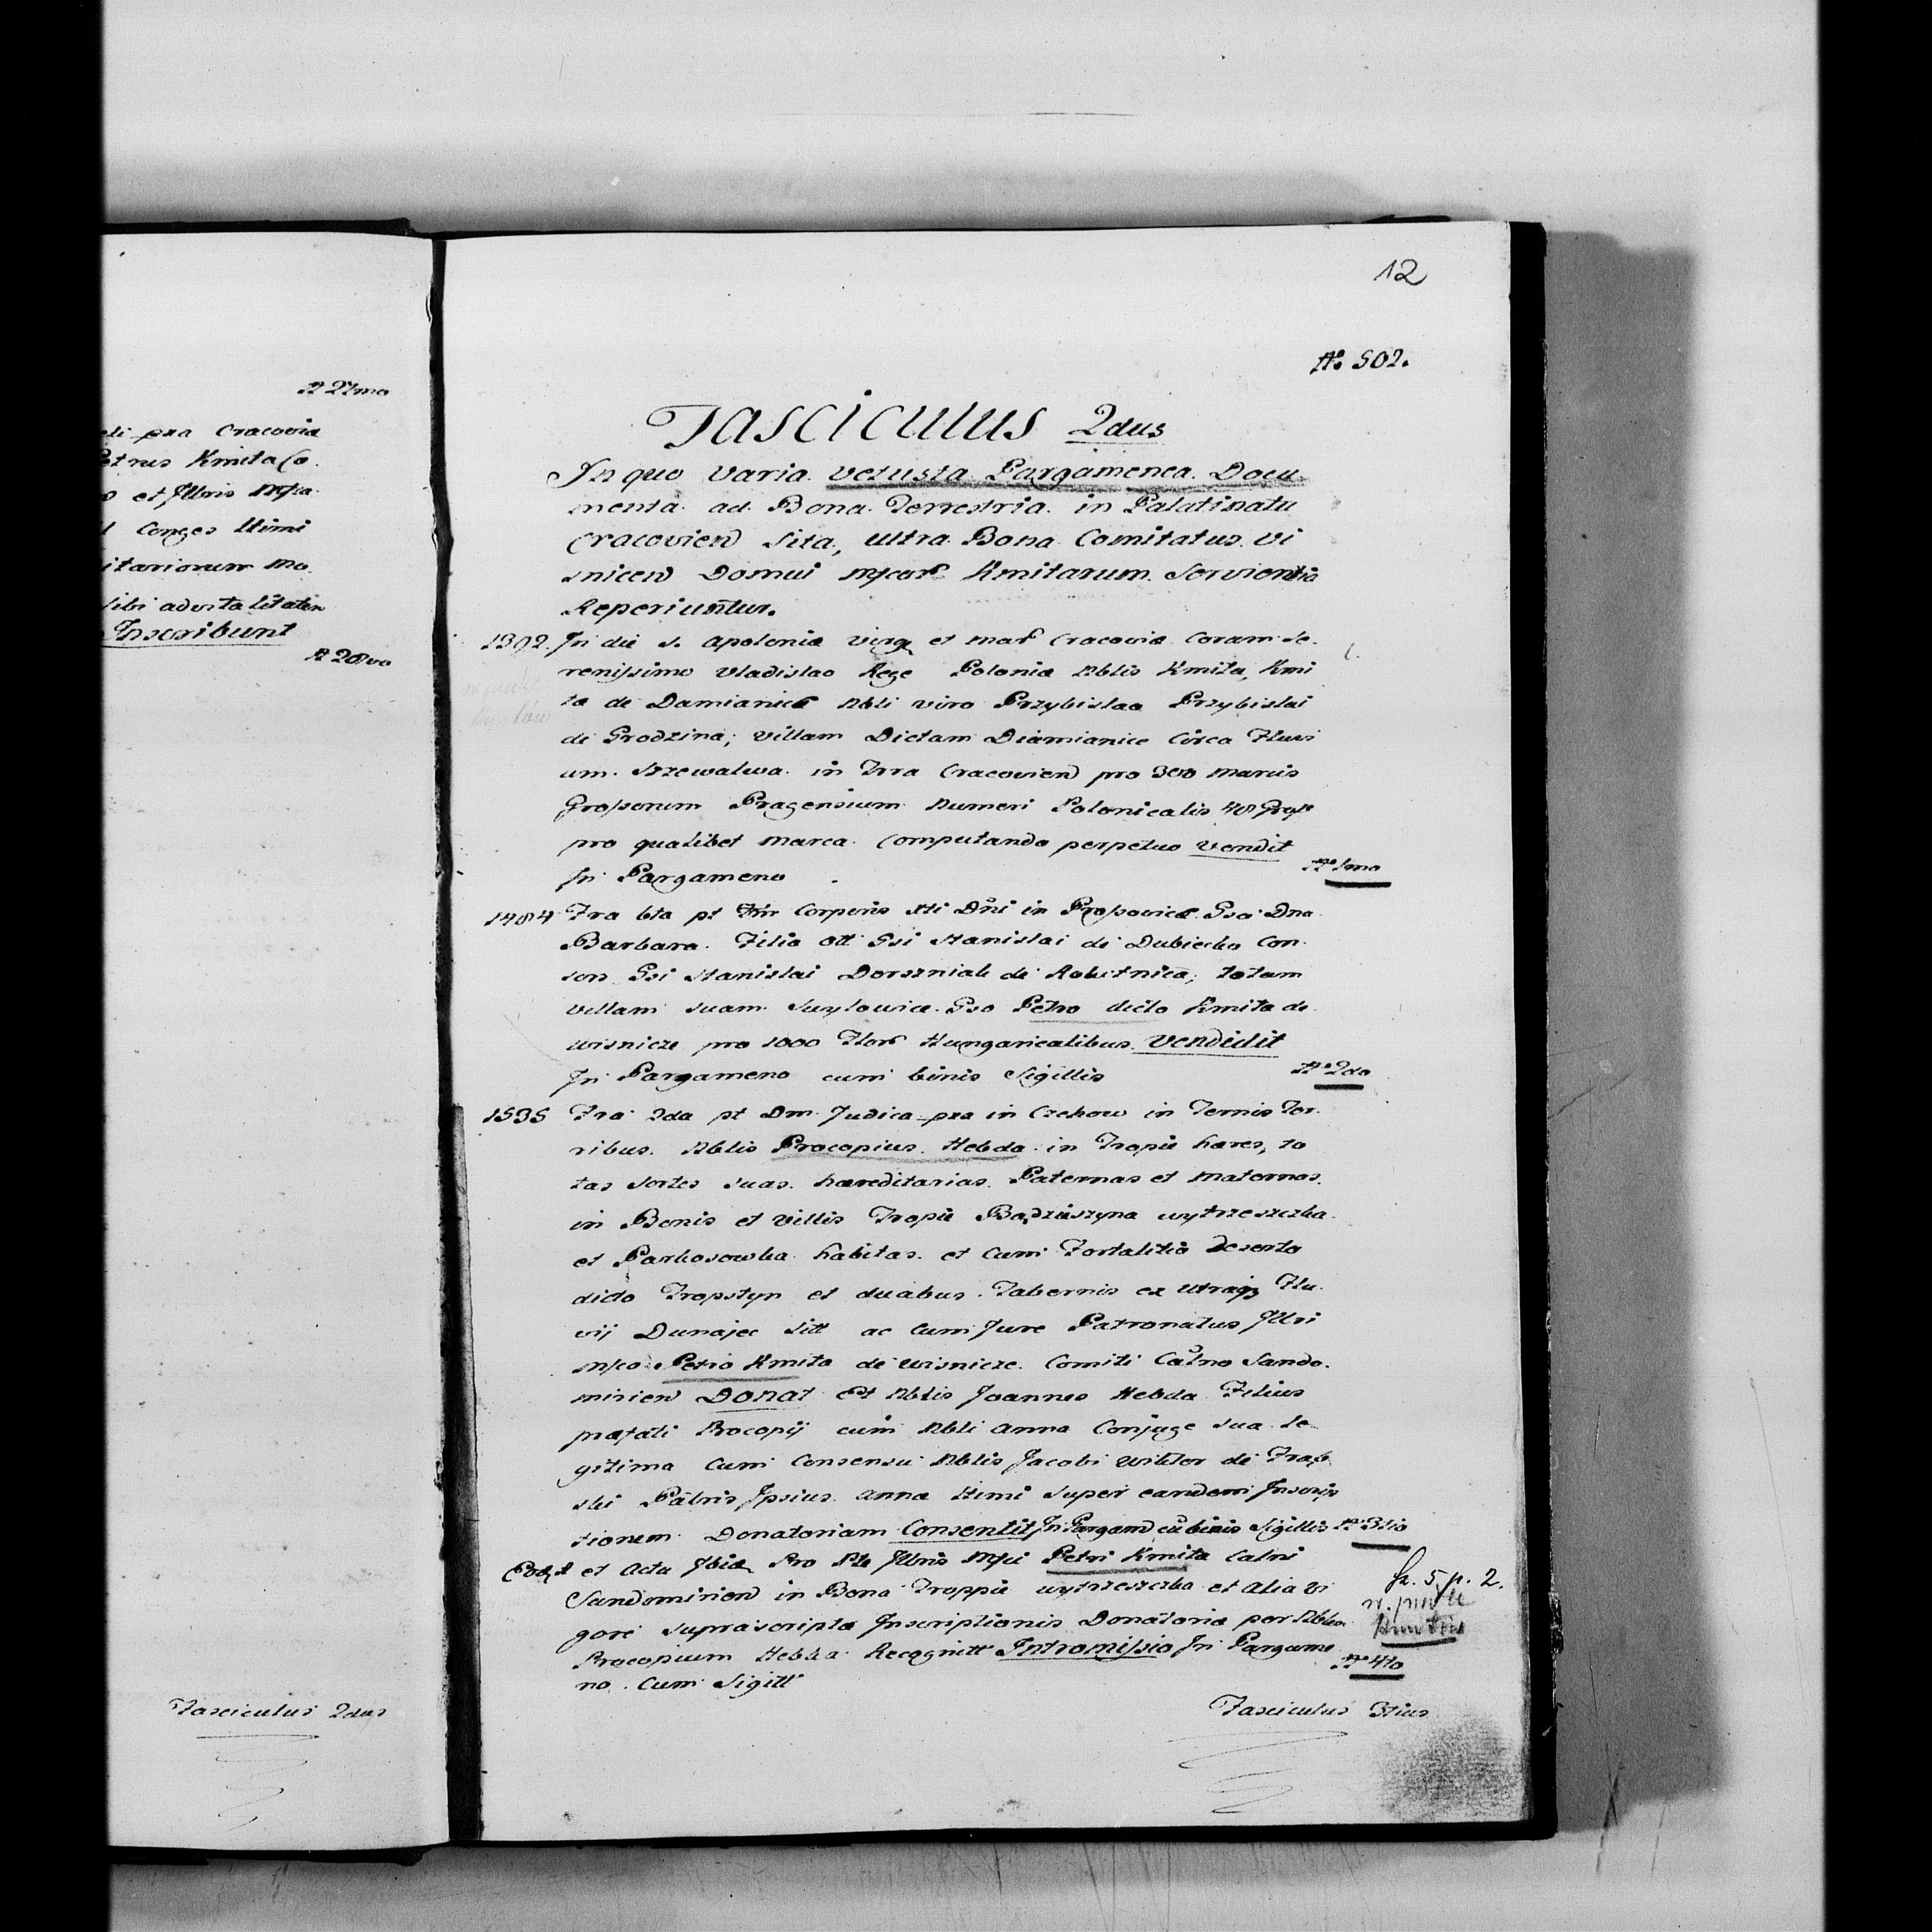 № 27mo
Cracovia
Petrus Kmita Co.
et Jllris Mfca
Conges llimi
itariorum Mo
sibi advitalitatem
Inscribunt
№ 28vo
Fasciculus 2dus
12
№. 502.
Fasciculus 2dus
In quo varia vetusta Pargamenea Docu
menta ad Bona Terrestria in Palatinatu
Cracovien Sita, ultra Bona Comitatus Vi
snicen Domui Mfcor Kmitarum Servientia
Reperiuntur.
1392. In die S. Apoloniæ virg et mar Cracoviæ Coram Se-
renissimo Vladislao Rege Poloniæ Nblis Kmita, Kmi
ta de Damianice Nbli viro Przybislao Przybislai
de Grodzina; Villam Dictam Diamianice Circa Fluvi
um Szrewalwa in Trra Cracovien pro 300 marcis
Grossorum Pragensium Numeri Polonicalis 48 Gross
pro qualibet marca Computando perpetuo Vendit
In Pargameno
№ 1mo
1484 Fra 6ta pt Corporis Xti Dni in Prossovice Gsa Dna
Barbara Filia olt Gsi Stanislai de Dubiecko Con-
sors Gsi Stanislai Dorszniak de Rokitnica, totam
villam suam Gso Petro dicto Kmita de
Wisnicze pro 1000 Flor Hungaricalibus Vendidit
In Pargameno cum binis Sigillis
№ 2do
1535 Fra 2da pt Dm Judica pxa in Czchow in Termis Ter-
ribus Nblis Procopius Hebda in Tropie hæres, to
tas sortes suas hæreditarias Paternas et maternas
in Bonis et Villis Tropie Bądziszyna wytrzeszczka
et Parkosowka habitas et cum Fortalitio Deserto
dicto Tropstyn et duabus Tabernis ex utraq Flu-
vij Dunajec Sitt ac cum Jure Patronatus Jllri
Mfco Petro Kmita de Wisnicze Comiti Calno Sando-
mirien Donat et Nblis Joannes Hebda Filius
præfati Procopij cum Nbli Anna Conjuge sua le-
gitima cum Consensu Nblis Jacobi wiktor de
Patris Jpsius Annæ super eandem Inscrip
tionem Donatoriam Consentit In Pargam cu binis Sigillis № 3tio
Eod A et Actu Jbid Pro Pte Jllris Mfci Petri Kmita Calni
Sandomirien in Bona Troppie wytrzeszczka et alia vi
gore suprascriptæ Inscriptionis Donatoriæ per Nblem
Procopium Hebda Recognitt Intromissio In Pargame
no cum Sigill
fr. 5. p. 2.
№ 4to
Fasciculus 3tius